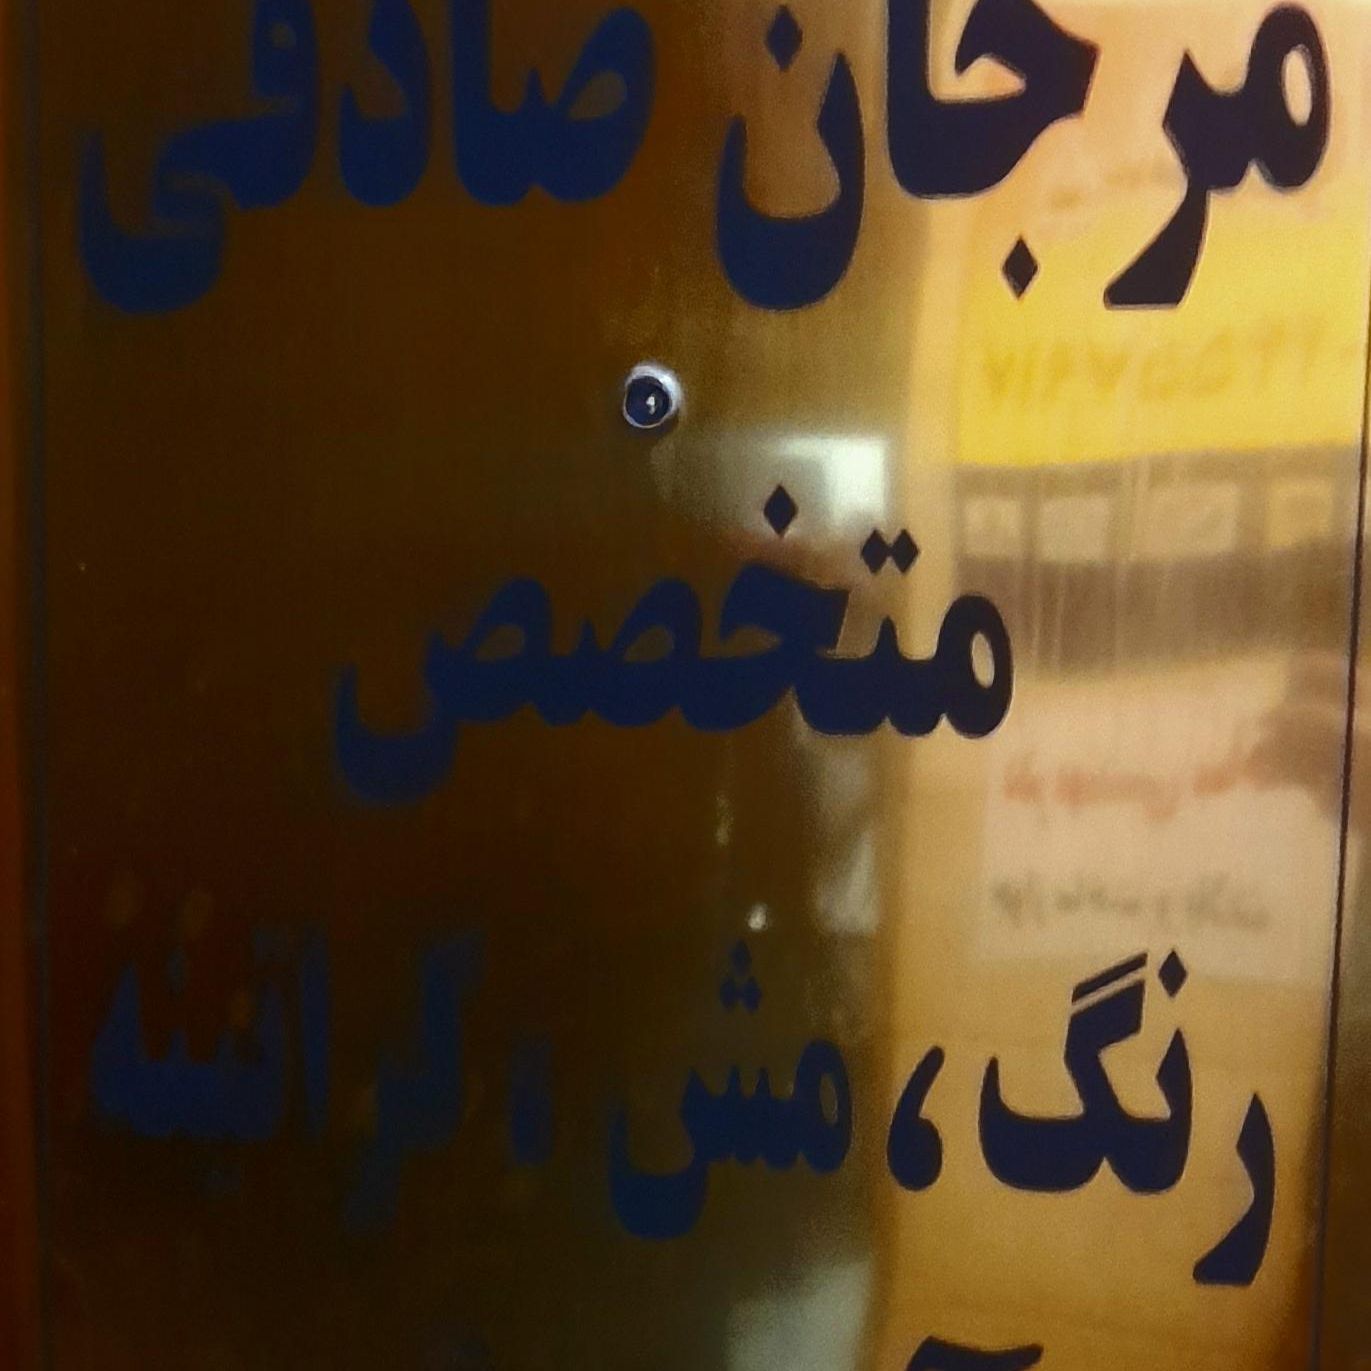 مرجان صادقی
متخصص
رنگ، مش، کراتینه